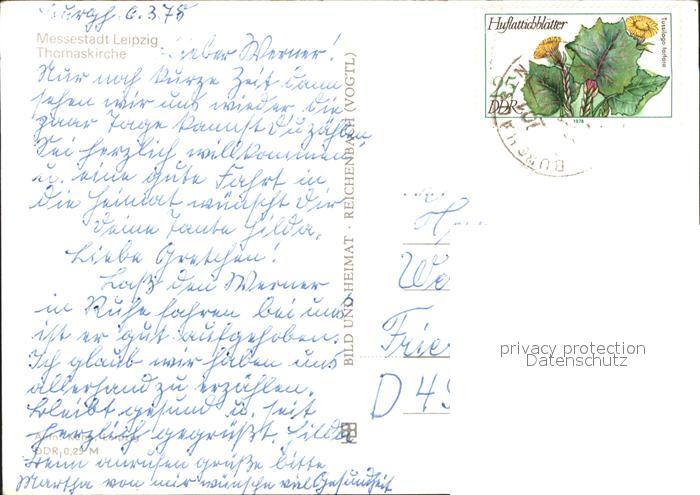 Burgh. 6.3.78
Messestadt Leipzig
Thomaskirche
Lieber Werner!
Nur noch kurze Zeit dann
sehen wir uns wieder. Die
paar Tage kannst Du zählen
Sei herzlich willkommen
u. eine gute Fahrt in
die Heimat wünscht Dir
Deine Tante Hilda.
Liebe Gretchen!
Laß den Werner
in Ruhe fahren bei uns
ist er gut aufgehoben.
Ich glaub wir haben uns
allerhand zu erzählen.
Bleibt gesund u. seit
herzlich gegrüßt. Hilda
DDR 0,25 M
Wenn anrufen grüße bitte
Martha von mir wünsche viel Gesundheit
BILD UND HEIMAT · REICHENBACH (VOGTL)
Huflattichblätter
Tussilago farfara
25
DDR
1978
BURG
We
Frie
D 49
privacy protection
Datenschutz